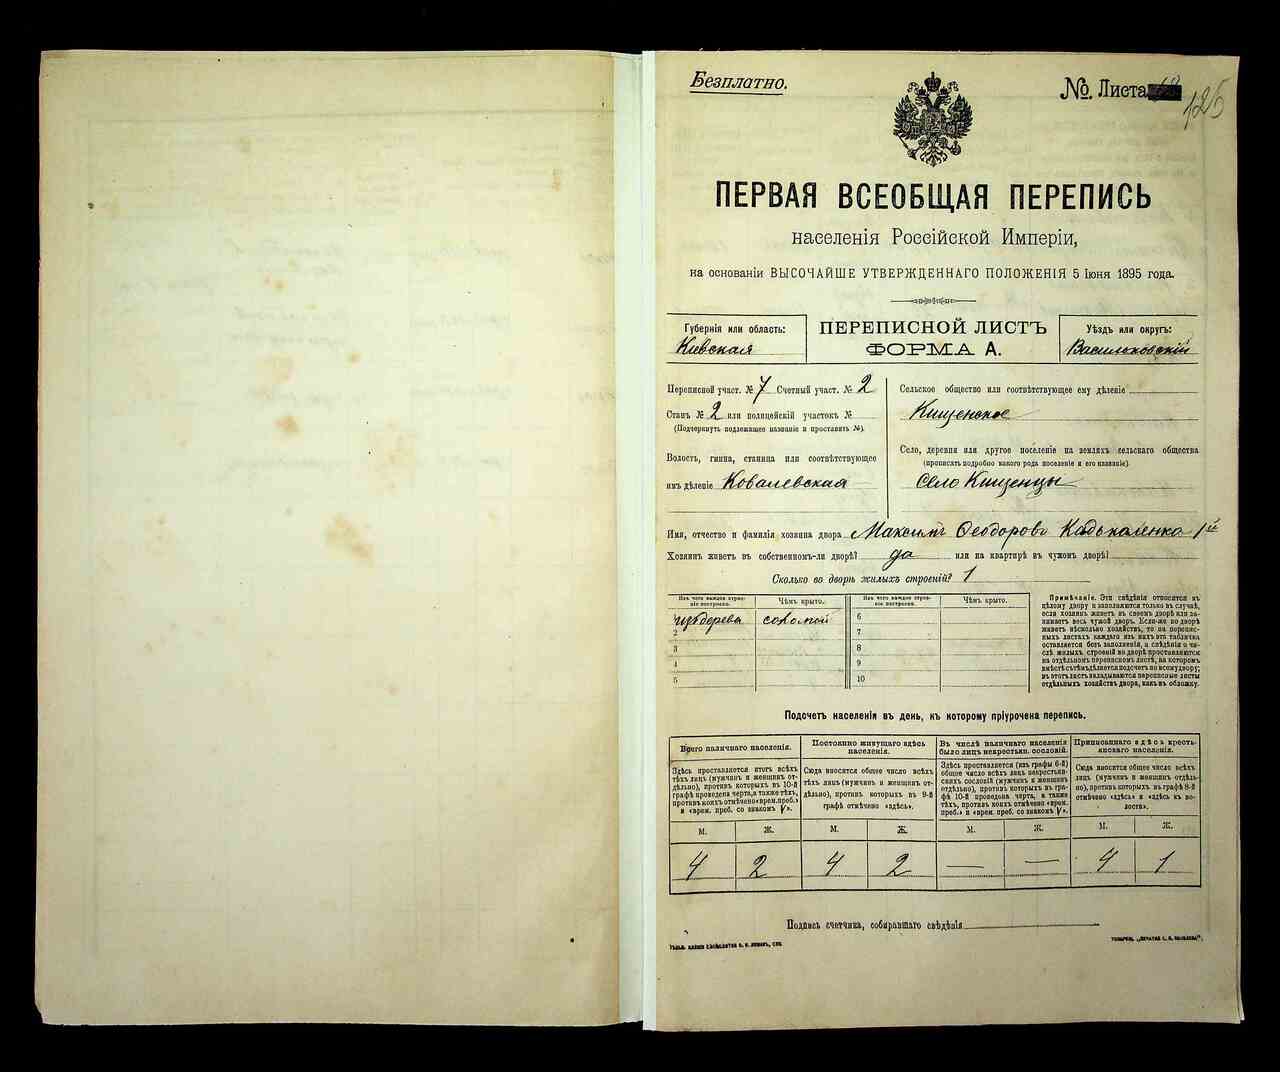 Безплатно.
№ Листа
125
ПЕРВАЯ ВСЕОБЩАЯ ПЕРЕПИСЬ
населенія Россійской Имперіи,
на основаніи ВЫСОЧАЙШЕ УТВЕРЖДЕННАГО ПОЛОЖЕНІЯ 5 Іюня 1895 года.
Губернія или область:
Кіевская
ПЕРЕПИСНОЙ ЛИСТЪ
ФОРМА А.
Уѣздъ или округъ:
Васильковскій
Переписной участ. № 7 Счетный участ. № 2
Станъ № 2 или полицейскій участокъ №
(Подчеркнуть подлежащее названіе и проставить №).
Волость, гмина, станица или соотвѣтствующее
имъ дѣленіе Ковалевская
Сельское общество или соотвѣтствующее ему дѣленіе
Кищенское
Село, деревня или другое поселеніе на земляхъ сельскаго общества
(прописать подробно какого рода поселеніе и его названіе).
Село Кищенцы
Имя, отчество и фамилія хозяина двора Максимъ Ѳеодоровъ Кадькаленко 1й
Хозяинъ живетъ въ собственномъ-ли дворѣ? да или на квартирѣ въ чужомъ дворѣ?
Сколько во дворѣ жилыхъ строеній? 1
Изъ чего каждое строеніе построено.
Чѣмъ крыто.
Изъ чего каждое строеніе построено.
Чѣмъ крыто.
изъ дерева соломой 6
2 7
3 8
4 9
5 10
Примѣчаніе. Эти свѣдѣнія относятся къ
цѣлому двору и заполняются только въ случаѣ,
если хозяинъ живетъ въ своемъ дворѣ или занимаетъ
весь чужой дворъ. Если-же во дворѣ
живетъ нѣсколько хозяйствъ, то на переписныхъ
листахъ каждаго изъ нихъ эта табличка
оставляется безъ заполненія, а свѣдѣнія о числѣ
жилыхъ строеній во дворѣ проставляются
на отдѣльномъ переписномъ листѣ, на которомъ
вмѣстѣ съ тѣмъ дѣлается подсчетъ по всему двору;
въ этотъ листъ вкладываются переписные листы
отдѣльныхъ хозяйствъ двора, какъ въ обложку.
Подсчетъ населенія въ день, къ которому пріурочена перепись.
Всего наличнаго населенія.
Здѣсь проставляется итогъ всѣхъ
тѣхъ лицъ (мужчинъ и женщинъ отдѣльно),
противъ которыхъ въ 10-й
графѣ проведена черта, а также тѣхъ,
противъ коихъ отмѣчено «врем. преб.»
и «врем. преб. со знакомъ V».
Постоянно живущаго здѣсь
населенія.
Сюда вносится общее число всѣхъ
тѣхъ лицъ (мужчинъ и женщинъ отдѣльно),
противъ которыхъ въ 9-й
графѣ отмѣчено «здѣсь».
Въ числѣ наличнаго населенія
было лицъ некрестьян. сословій.
Здѣсь проставляется (изъ графы 6-й)
общее число всѣхъ лицъ некрестьянскихъ
сословій (мужчинъ и женщинъ
отдѣльно), противъ которыхъ въ графѣ
10-й проведена черта, а также
тѣхъ, противъ коихъ отмѣчено «врем.
преб.» и «врем. преб. со знакомъ V».
Приписаннаго здѣсь крестьянскаго
населенія.
Сюда вносится общее число всѣхъ
лицъ (мужчинъ и женщинъ отдѣльно),
противъ которыхъ въ графѣ 8-й
отмѣчено «здѣсь» и «здѣсь въ волости».
М. Ж. М. Ж. М. Ж. М. Ж.
4 2 4 2 — — 4 1
Подпись счетчика, собиравшаго свѣдѣнія